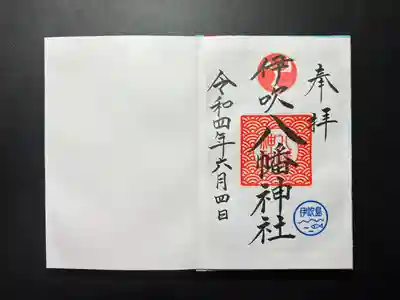 奉拝
伊吹八幡神社
令和四年六月四日
伊吹島